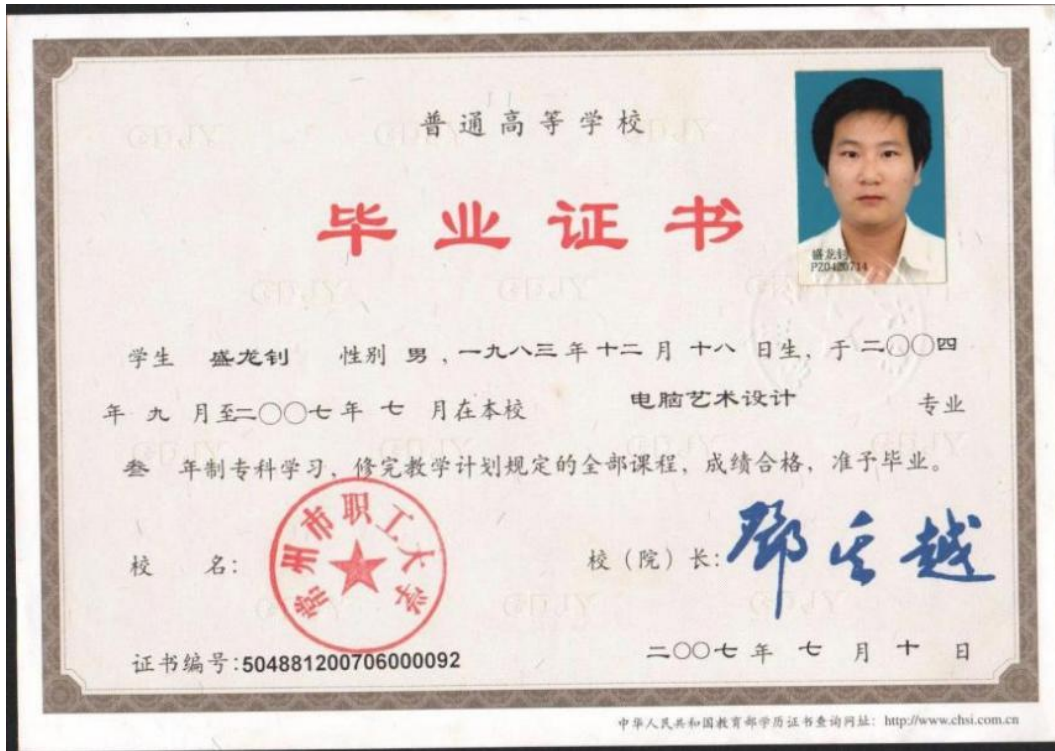 普通高等学校
毕业证书
盛龙钊
PZ0420714
学生 盛龙钊 性别 男，一九八三年十二月十八日生，于二〇〇四
年九月至二〇〇七年七月在本校 电脑艺术设计 专业
叁年制专科学习，修完教学计划规定的全部课程，成绩合格，准予毕业。
常州市职工大学
校 名：
校（院）长：
证书编号:504881200706000092
二〇〇七年七月十日
中华人民共和国教育部学历证书查询网址：http://www.chsi.com.cn